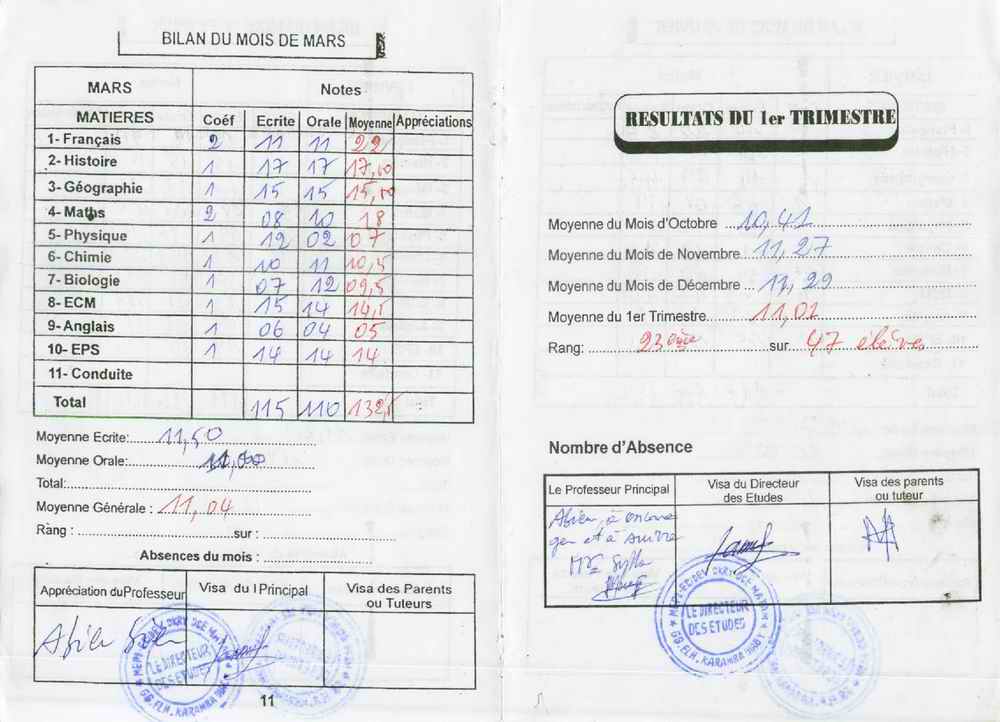 BILAN DU MOIS DE MARS
MARS Notes
MATIERES Coéf Ecrite Orale Moyenne Appréciations
1- Français 2 11 11 22
2- Histoire 1 17 17 17,00
3- Géographie 1 15 15 15,00
4- Maths 2 08 10 18
5- Physique 1 12 02 07
6- Chimie 1 10 11 10,5
7- Biologie 1 07 12 09,5
8- ECM 1 15 14 14,5
9- Anglais 1 06 04 05
10- EPS 1 14 14 14
11- Conduite
Total 115 110 132,5
Moyenne Ecrite: 11,50
Moyenne Orale: 11,00
Total:
Moyenne Générale : 11,04
Rang : sur :
Absences du mois :
Appréciation du Professeur Visa du Principal Visa des Parents
ou Tuteurs
LE DIRECTEUR
DES ETUDES
11
RESULTATS DU 1er TRIMESTRE
Moyenne du Mois d'Octobre 10,41
Moyenne du Mois de Novembre 11,27
Moyenne du Mois de Décembre 11,29
Moyenne du 1er Trimestre 11,02
Rang: 23ème sur 47 élèves
Nombre d'Absence
Le Professeur Principal Visa du Directeur
des Etudes Visa des parents
ou tuteur
à encoura
ger et à suivre
Mr Sylla
LE DIRECTEUR
DES ETUDES